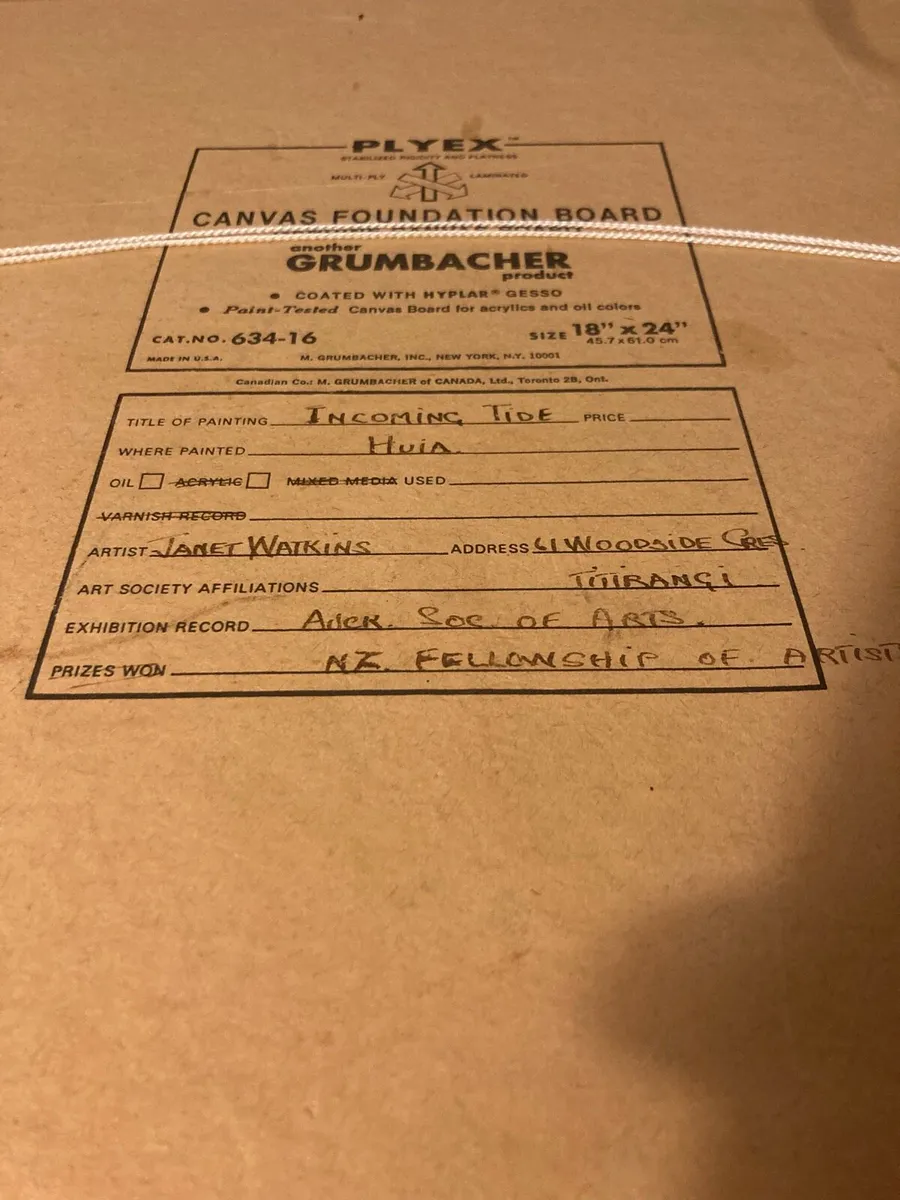 PLYEX™
STABILIZED RIGIDITY AND FLATNESS
MULTI-PLY LAMINATED
CANVAS FOUNDATION BOARD
another
GRUMBACHER
product
• COATED WITH HYPLAR® GESSO
• Paint-Tested Canvas Board for acrylics and oil colors
CAT.NO. 634-16 SIZE 18" x 24"
45.7 x 61.0 cm
MADE IN U.S.A. M. GRUMBACHER, INC., NEW YORK, N.Y. 10001
Canadian Co.: M. GRUMBACHER of CANADA, Ltd., Toronto 2B, Ont.
TITLE OF PAINTING INCOMING TIDE PRICE
WHERE PAINTED HUIA
OIL ACRYLIC MIXED MEDIA USED
VARNISH RECORD
ARTIST JANET WATKINS ADDRESS 61 WOODSIDE CRES
TITIRANGI
ART SOCIETY AFFILIATIONS
EXHIBITION RECORD AUCK. SOC OF ARTS.
PRIZES WON NZ. FELLOWSHIP OF ARTIST